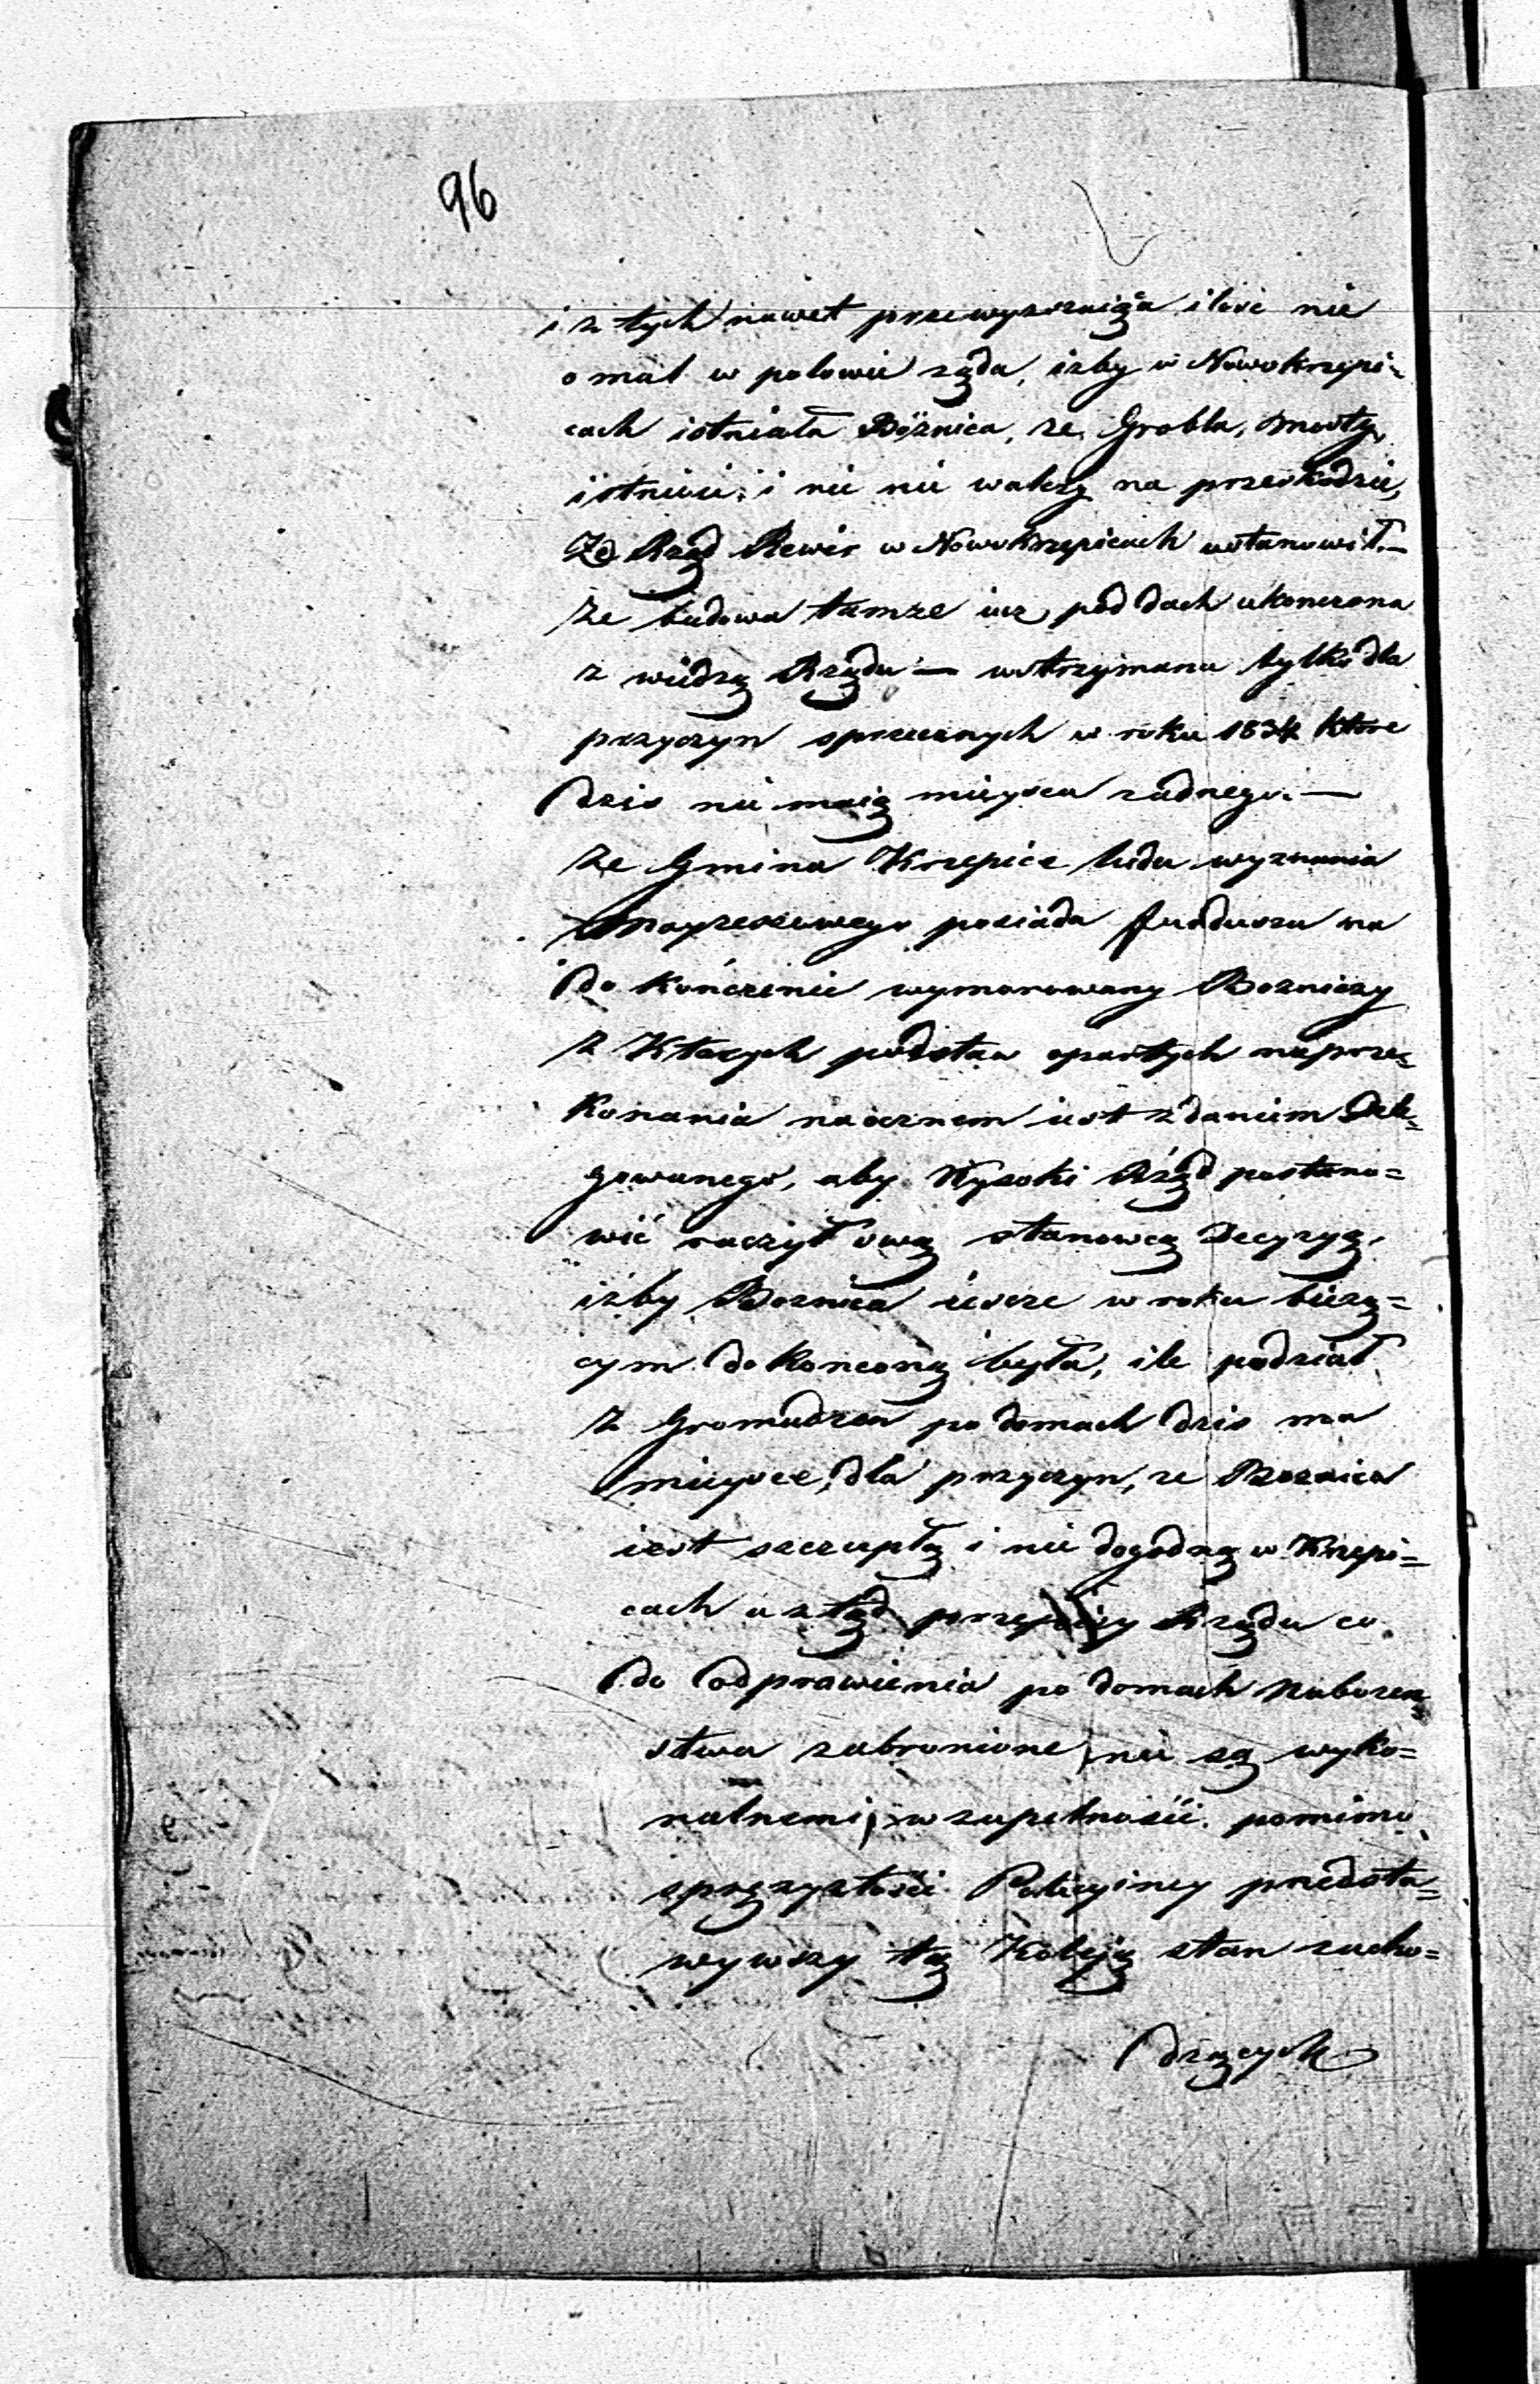 96
i z tych nawet przewyzszaiąca ilosc nie
omal w połowie ząda, izby w Nowokrzepi=
cach istniała Bóżnica, ze Grobla, mosty,
istnieie, i nic nie walczy na przeszkodzie,
Ze Rząd Rewir w Nowokrzepicach ustanowił.—
ze budowa tamze iuz pod dach ukonczona
z wiedzą Rządu — wstrzymana tylko dla
przyczyn sprzecznych w roku 1834 które
dzis nie maią mieysca zadnego.—
ze Gmina Krzepice ludu wyznania
Moyzeszowego posiada fundusze na
do kończenie wymurowany Boznicy
z Których podstaw opartych na prze=
konania naocznem iest zdaniem Dele=
gowanego, aby Wysoki Rząd postano=
wić raczył swą stanowczą Decyzyą,
iżby Boznica ieszcze w roku bieżą=
cym do Konconą była, ile podział
z Gromadzeń po domach dzis ma
mieysce, dla przyczyn, ze Boznica
iest szczupłą i nie dogodną w Krzepi=
cach a ztąd przepisy Rządu co
do odprawienia po domach Nabozen=
stwa zabronione, nie są wyko=
nalnemi, w zupełności pomimo
sprężystości Policyiney przedsta=
wywszy tą Koleją stan zacho=
dzących